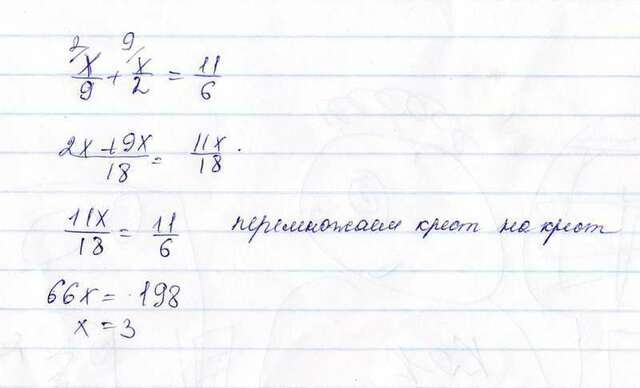 2/ 9/
x/9 + x/2 = 11/6
2x+9x/18 = 11x/18.
11x/18 = 11/6 перемножаем крест на крест
66x = 198
x = 3